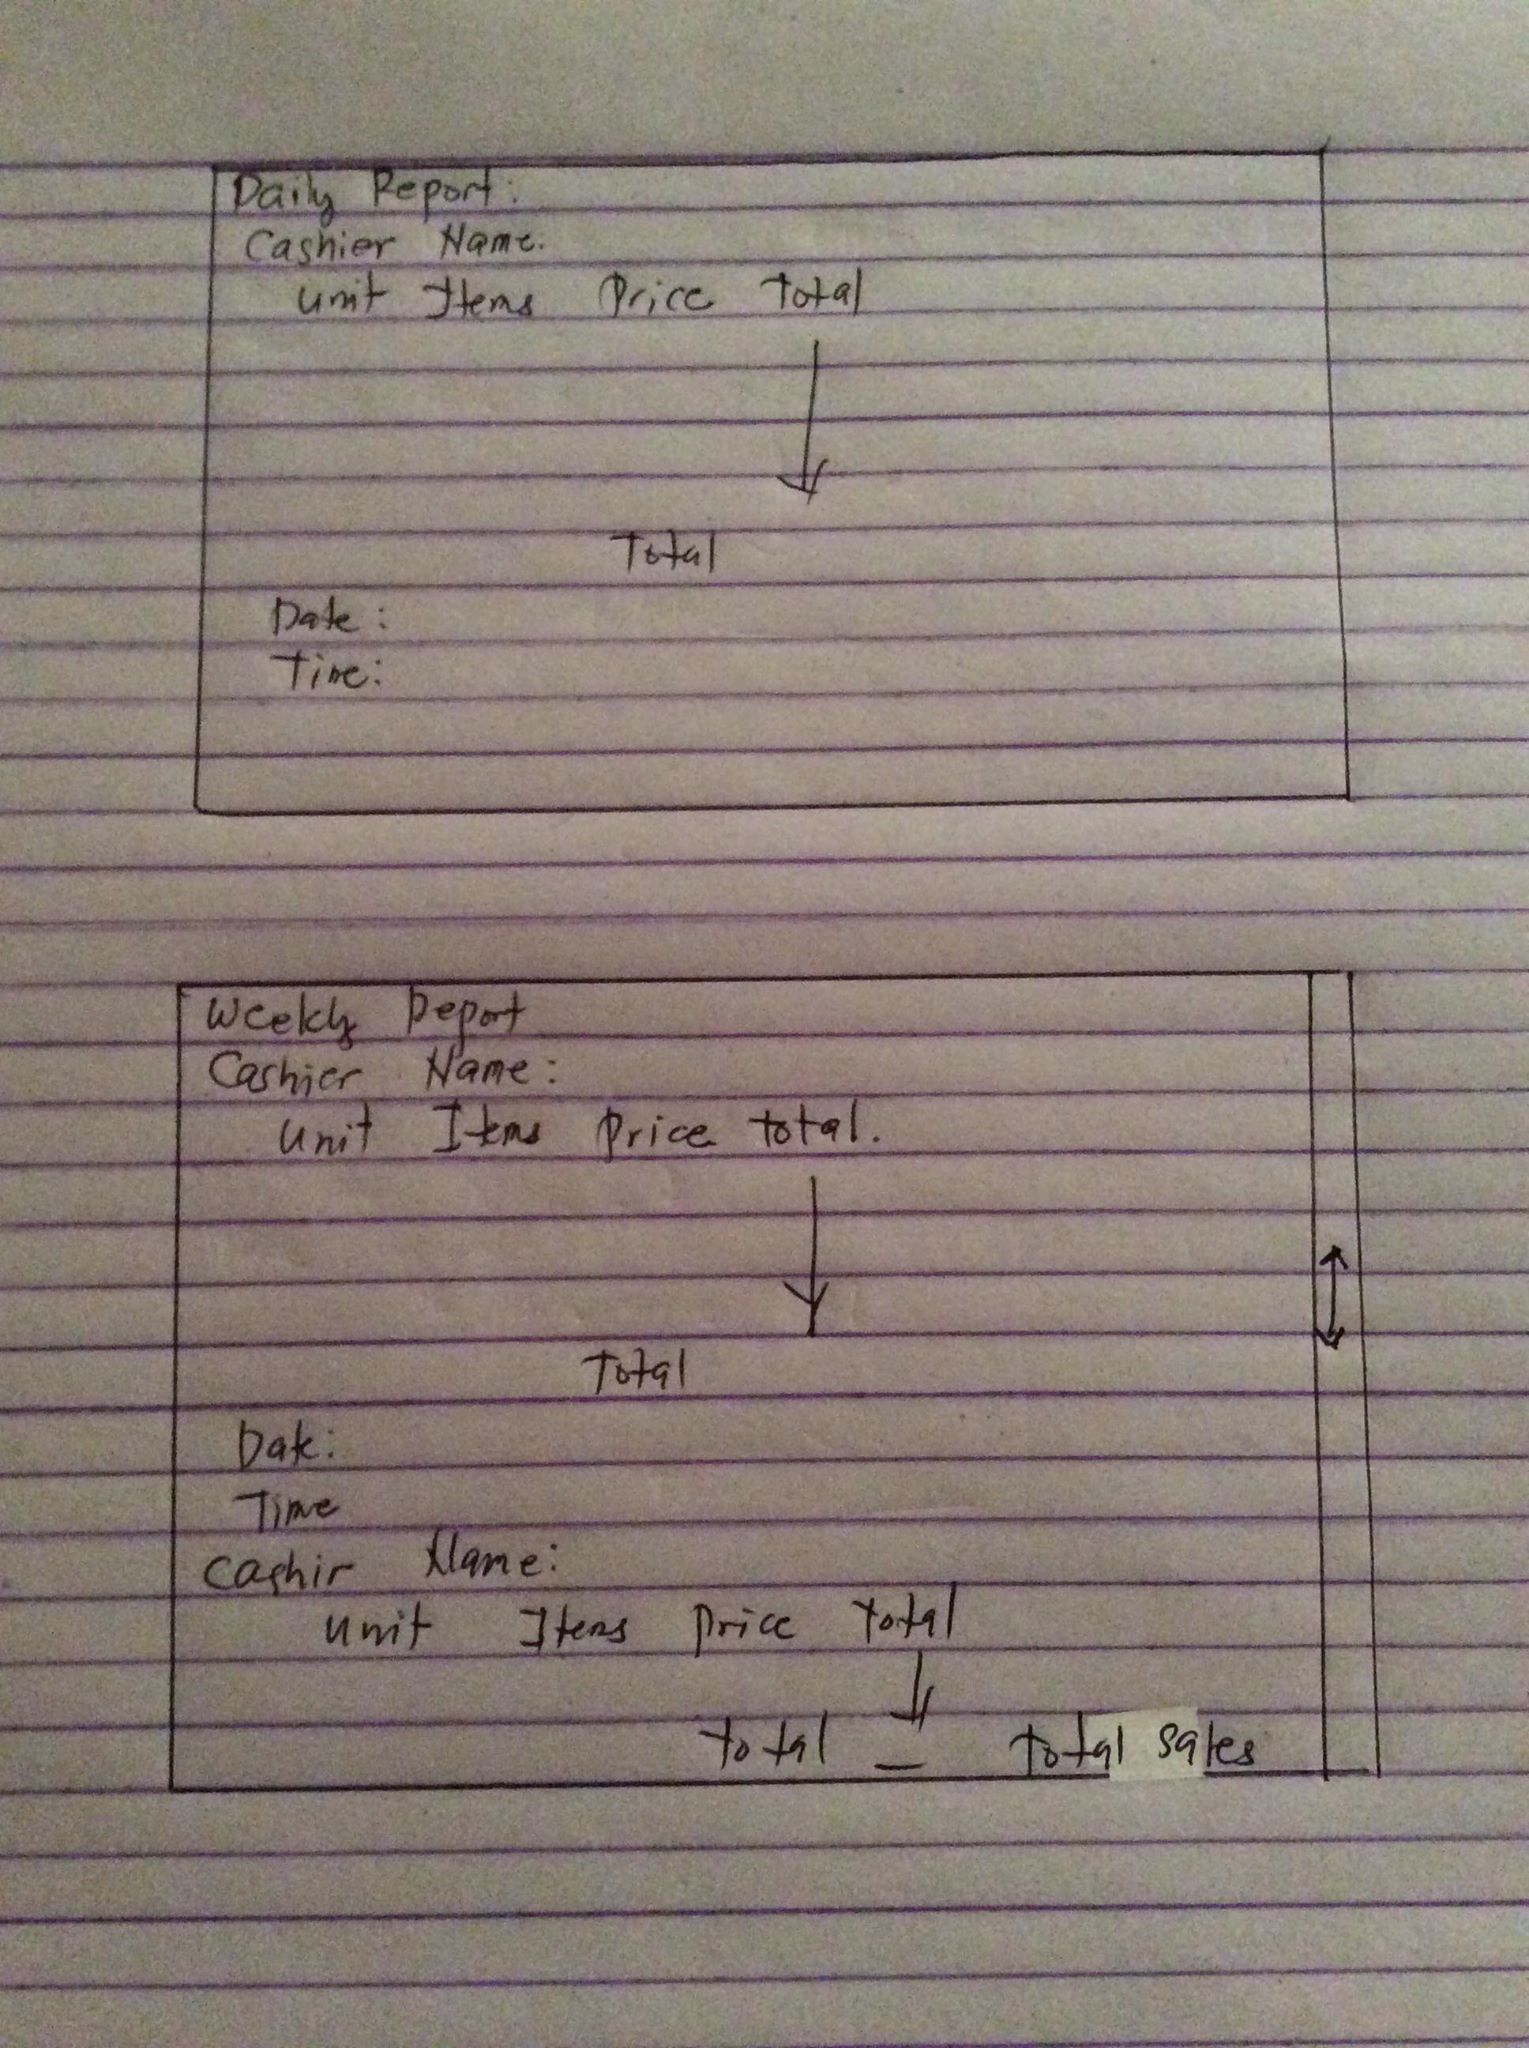 Daily Report:
Cashier Name.
Unit Items Price Total
Total
Date:
Time:
Weekly Report
Cashier Name:
Unit Items Price total.
Total
Date:
Time
Cashir Name:
Unit Items Price total
total – total sales